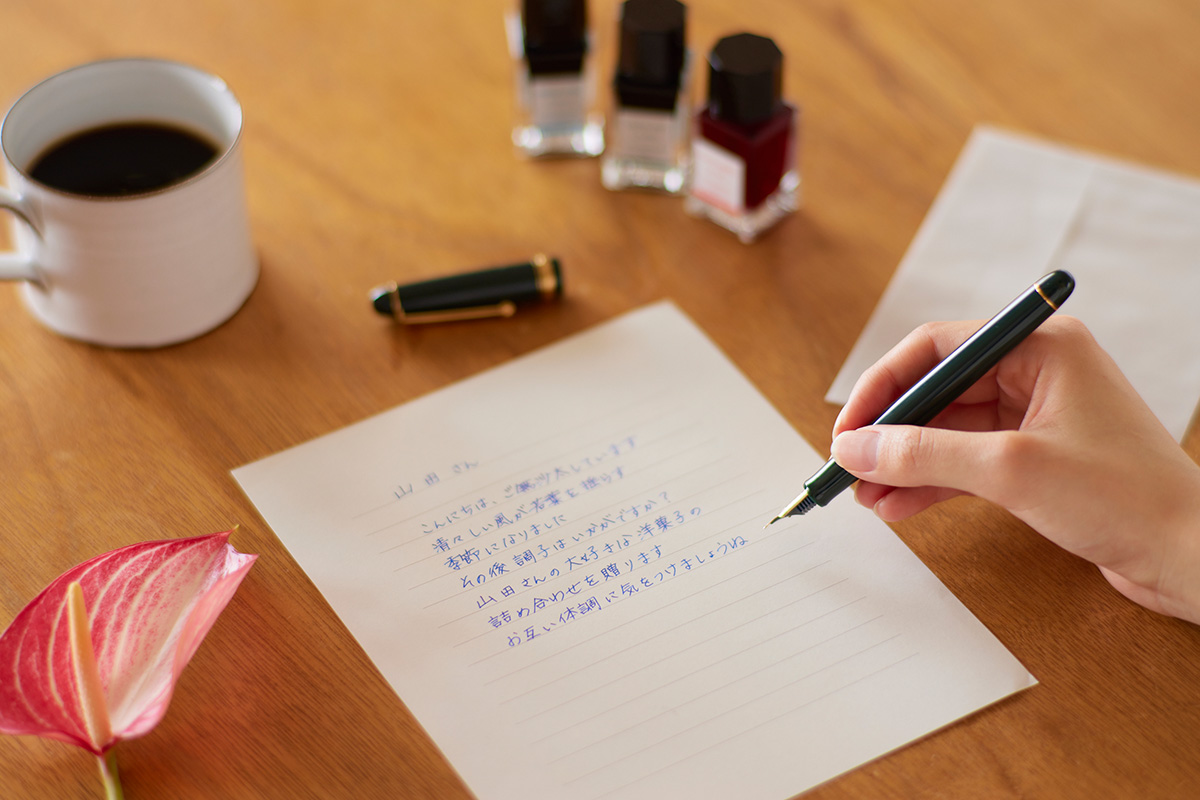 山田さん
こんにちは、ご無沙汰しています
清々しい風が若葉を揺らす
季節になりました
その後調子はいかがですか？
山田さんの大好きな洋菓子の
詰め合わせを贈ります
お互い体調に気をつけましょうね